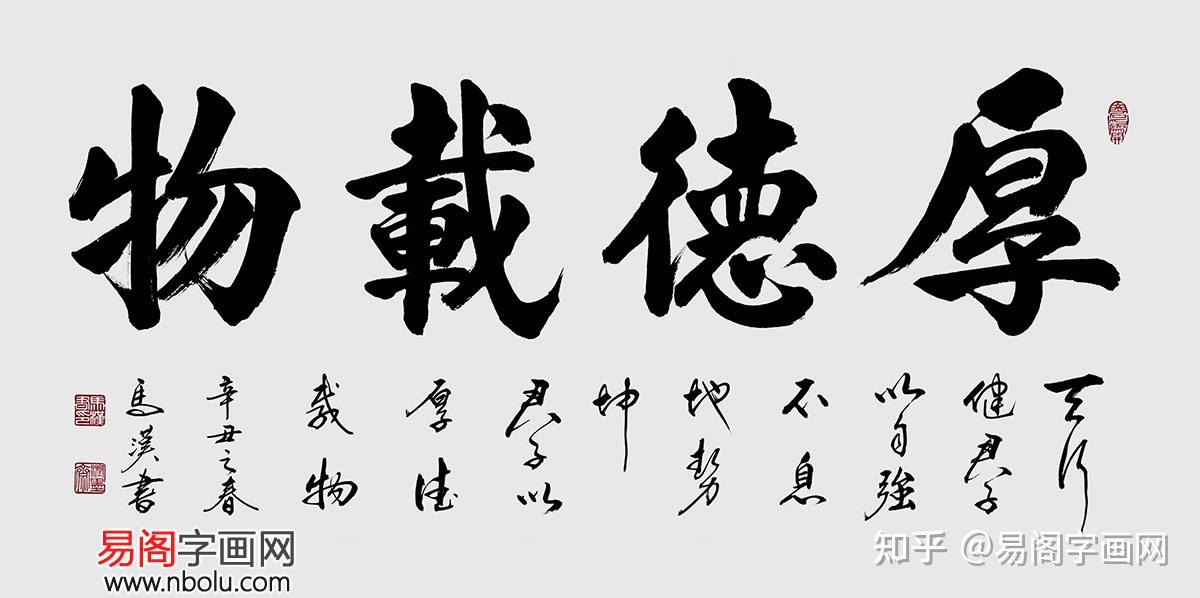 厚德載物
天行
健君子
以自強
不息
地勢
坤
君子以
厚德
載物
辛丑之春
馬漢書
易阁字画网
www.nbolu.com
知乎 @易阁字画网